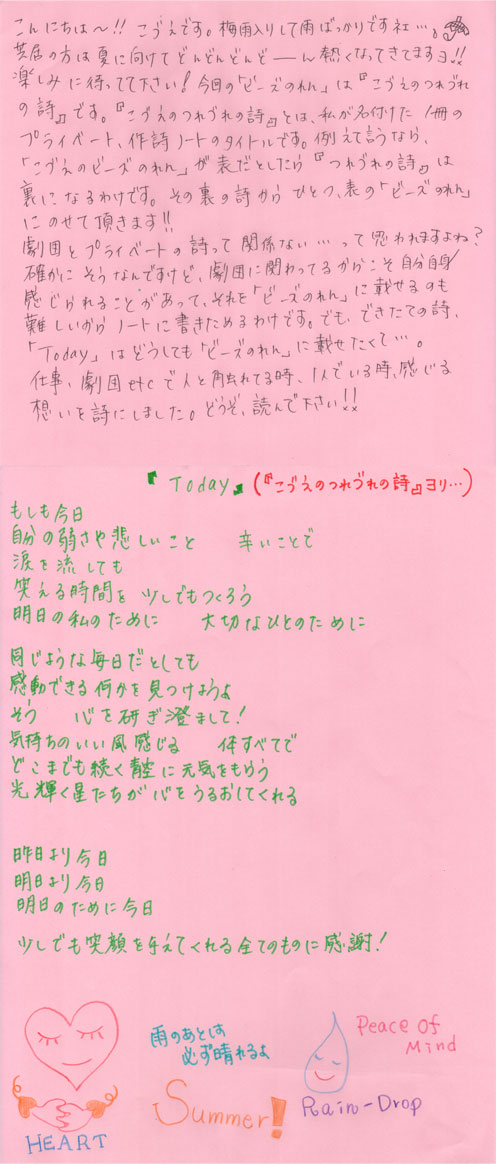 こんにちは〜!! こづえです。梅雨入りして雨ばっかりですネ…。
芝居の方は夏に向けてどんどんどんどーーん熱くなってきてますヨ!!
楽しみに待ってて下さい! 今回の「ビーズのれん」は『こづえのつれづれ
の詩』です。『こづえのつれづれの詩』とは、私が名付けた1冊の
プライベート、作詩ノートのタイトルです。例えて言うなら、
「こづえのビーズのれん」が表だとしたら『つれづれの詩』は
裏になるわけです。その裏の詩から ひとつ、表の「ビーズのれん」
にのせて頂きます!!
劇団とプライベートの詩って関係ない…って思われますよね?
確かにそうなんですけど、劇団に関わってるからこそ自分自身
感じられることがあって、それを「ビーズのれん」に載せるのも
難しいからノートに書きためるわけです。でも、できたての詩、
「Today」はどうしても「ビーズのれん」に載せたくて…。
仕事、劇団etcで人と触れてる時、1人でいる時、感じる
想いを詩にしました。どうぞ、読んで下さい!!
『Today』(『こづえのつれづれの詩』ヨリ…)
もしも今日
自分の弱さや悲しいこと 辛いことで
涙を流しても
笑える時間を 少しでもつくろう
明日の私のために 大切なひとのために
同じような毎日だとしても
感動できる何かを見つけようよ
そう 心を研ぎ澄まして!
気持ちのいい風感じる 体すべてで
どこまでも続く青空に元気をもらう
光輝く星たちが心をうるおしてくれる
昨日より今日
明日より今日
明日のために今日
少しでも笑顔を与えてくれる全てのものに感謝!
雨のあとは
必ず晴れるよ
Peace of
Mind
Summer!
Rain-Drop
HEART